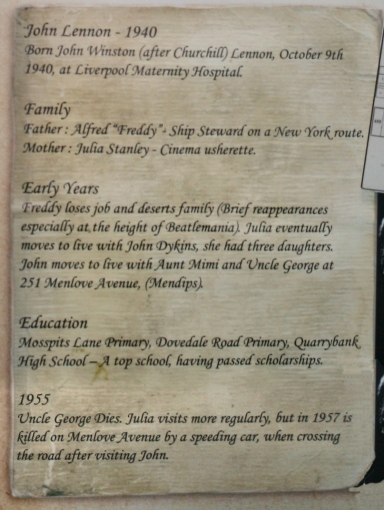 John Lennon - 1940
Born John Winston (after Churchill) Lennon, October 9th
1940, at Liverpool Maternity Hospital.
Family
Father : Alfred "Freddy"- Ship Steward on a New York route.
Mother : Julia Stanley - Cinema usherette.
Early Years
Freddy loses job and deserts family (Brief reappearances
especially at the height of Beatlemania). Julia eventually
moves to live with John Dykins, she had three daughters.
John moves to live with Aunt Mimi and Uncle George at
251 Menlove Avenue, (Mendips).
Education
Mosspits Lane Primary, Dovedale Road Primary, Quarrybank
High School – A top school, having passed scholarships.
1955
Uncle George Dies. Julia visits more regularly, but in 1957 is
killed on Menlove Avenue by a speeding car, when crossing
the road after visiting John.